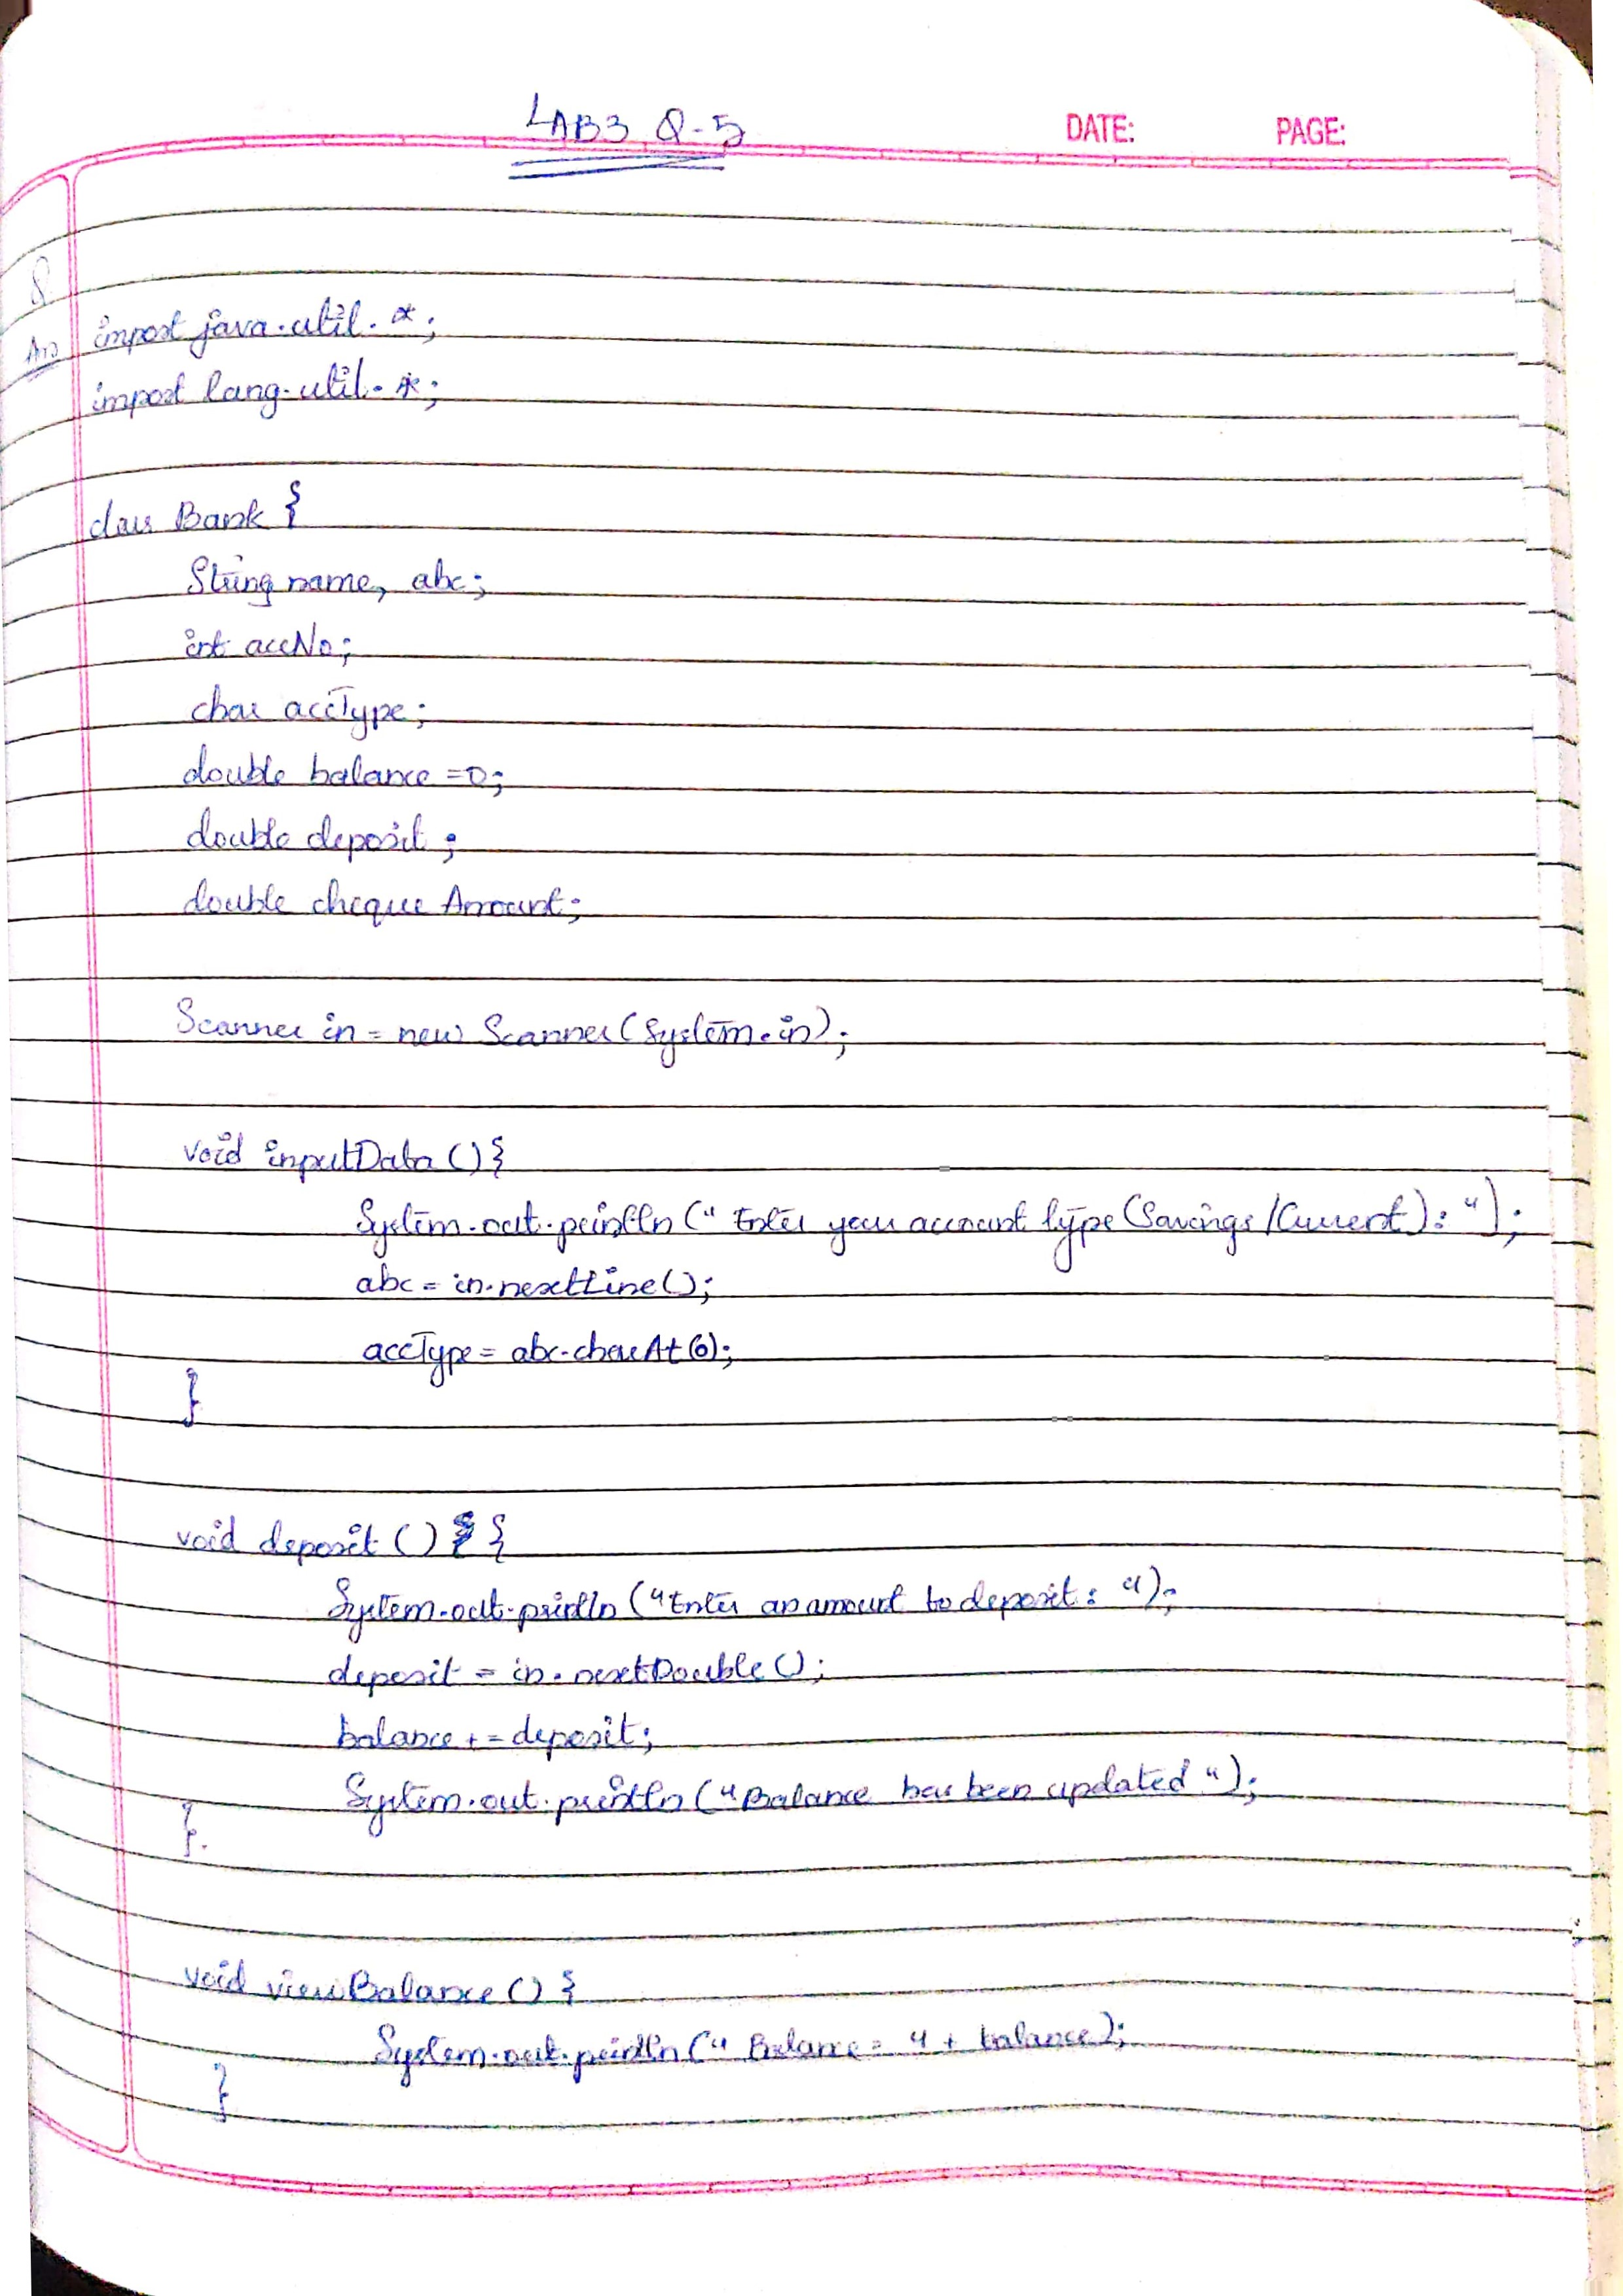 LAB3 Q-5
DATE: PAGE:
Q
Ans import java.util.*;
import lang.util.*;
class Bank {
String name, abc;
int accNo;
char accType;
double balance =0;
double deposit;
double cheque Amount;
Scanner in = new Scanner(System.in);
void inputData () {
System.out.println (" Enter your account type (Savings/Current): ");
abc = in.nextLine();
accType = abc.charAt(0);
}
void deposit () {
System.out.println ("Enter an amount to deposit: ");
deposit = in.nextDouble();
balance += deposit;
System.out.println ("Balance has been updated ");
}
void viewBalance () {
System.out.println (" Balance = " + balance);
}